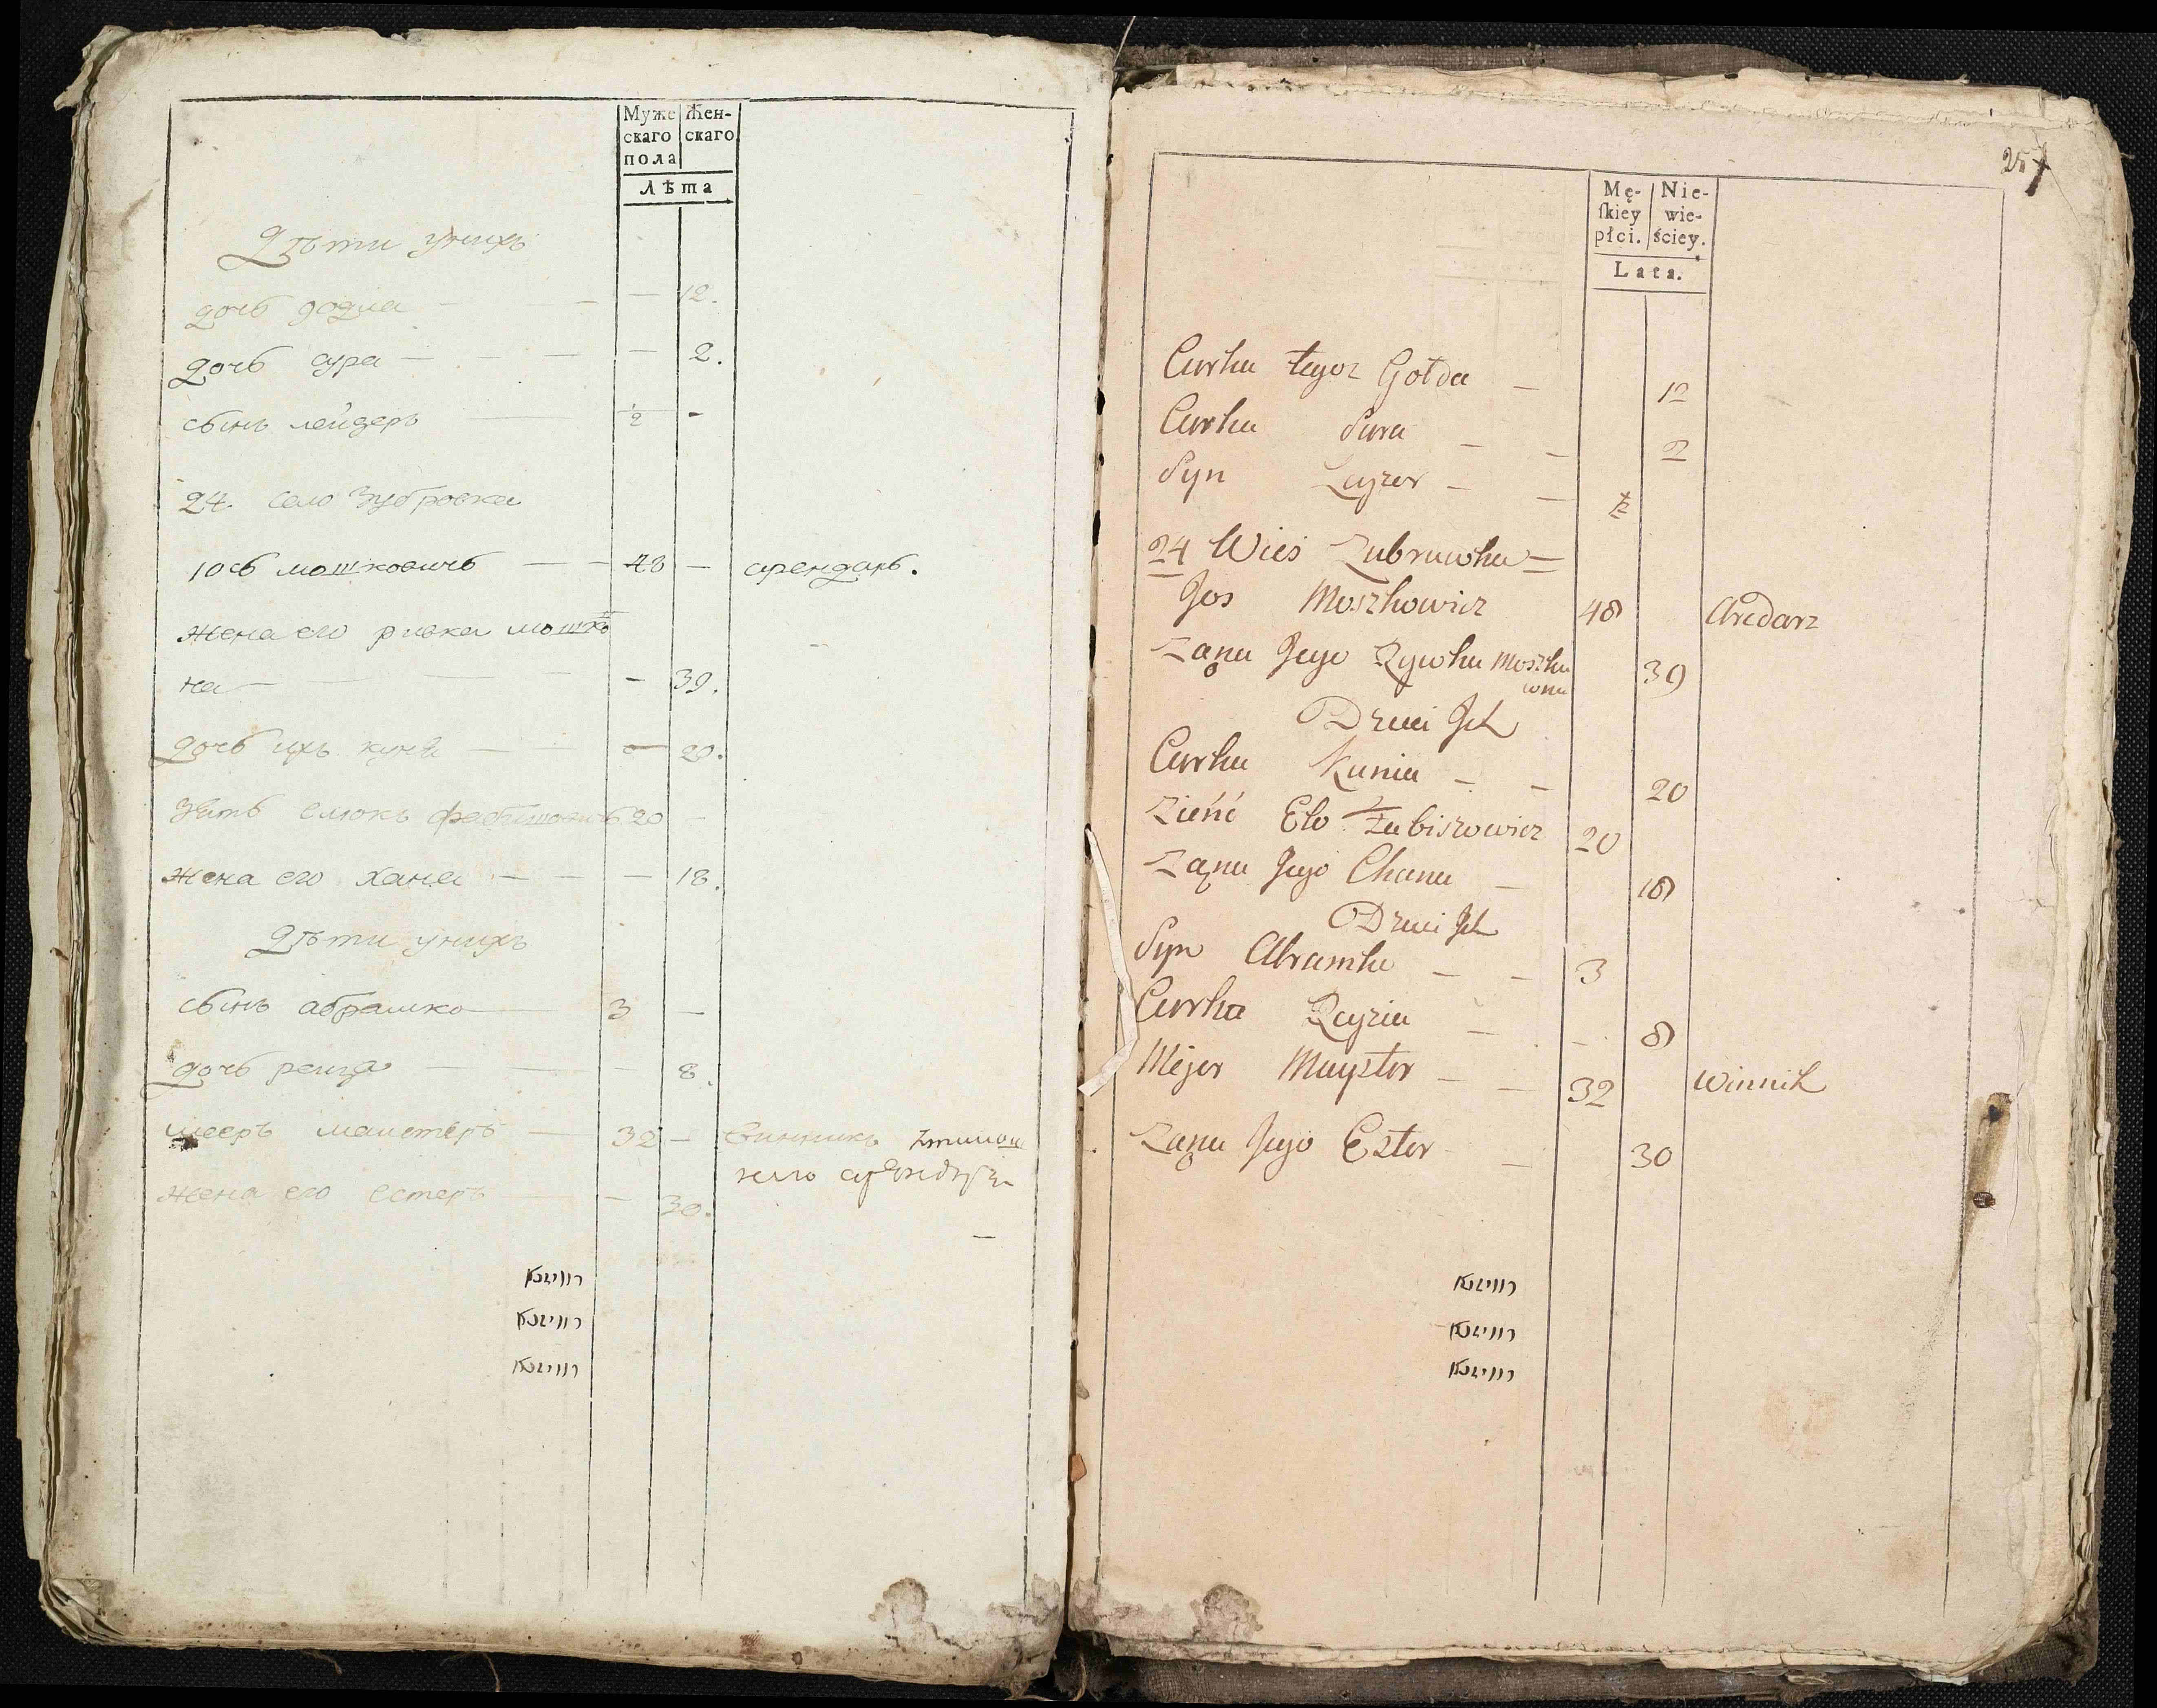 Муже
скаго
пола
Жен-
скаго
Лѣта
Дѣти унихъ
дочь голда — — — 12.
дочь сура — — — — 2.
сынъ лейзеръ — 1/2 -
24. село Зубровка
Іось мошковичъ — — 48 — арендарь.
жена его ривка мошков
на — — — - 39.
дочь ихъ куня — — — 20.
Зять елюкъ фабишовичъ 20 —
жена его хана — — — 18.
Дѣти унихъ
сынъ абрамко — 3 —
дочь рейзя — — — 8.
мееръ маистеръ — 32 — винникъ
жена его естеръ — — 30.
257
Mę-
ſkiey
płci.
Nie-
wie-
ściey.
Lata.
Curka tegoz Gołda — 12
Curka Sura — — 2
Syn Layzer — — 1/2
24 Wieś Zubruwka =
Jos Moszkowicz 48 Aredarz
Ząna Jego Rywka Moszku
wna 39
Dzieci Jch
Curka Kunia — — 20
Zieńć Elo Fabiszowicz 20
Ząna Jego Chana — 18
Dzieci Jch
Syn Abramko — — 3
Curka Rayzia — — 8
Mejer Mayster — — 32 Winnik
Ząna Jego Ester — 30